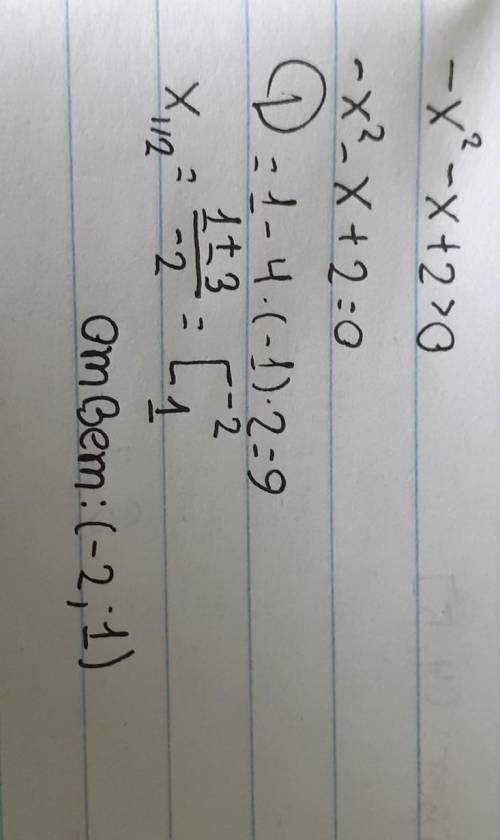 -x² - x + 2 > 0
-x² - x + 2 = 0
D = 1 - 4 · (-1) · 2 = 9
x₁/₂ = (1 ± 3)/(-2) = [-2 1
Ответ: (-2; 1)